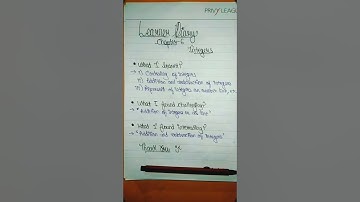 PRIVY LEAGUE
Learner Diary
Chapter-6
Integers
• What I learn?
→ i) Controlling of Integers
→ ii) Addition and subtraction of Integers
→ iii) Represent of Integers on number line, etc.
• What I found challenging?
→ "Addition of Integers on no. line"
• What I found interesting?
→ "Addition and subtraction of Integers"
Thank You